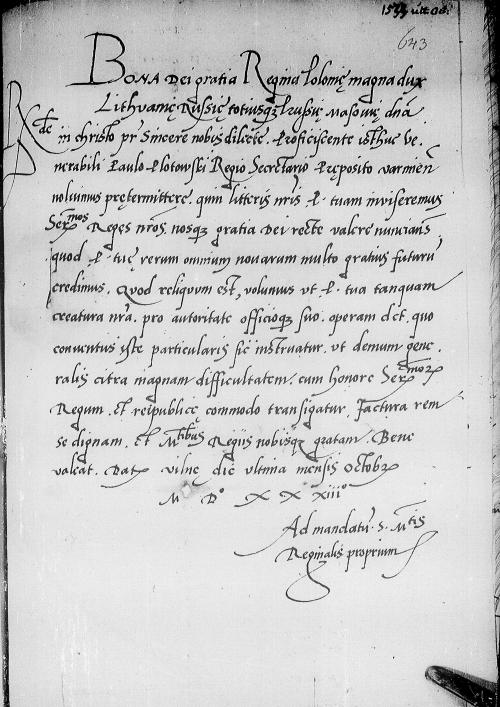 1533 ult Oct.
643
BONA Dei gratia Regina Polonię magna dux
Lithuanię Russię totiusqȝ Prussię Masouię dnā
Rxde in christo pr̄ Sincere nobis dilecte. Proficiscente isthuc ve.
nerabili Paulo Plotowski Regio Secretario Pręposito varmień
noluimus prętermittere. quin litteris nr̄is P. tuam inviseremus
Serṃmos Reges nr̄os. nosqȝ gratia Dei recte valere nuncians
quod P. tuę rerum omnium nouarum multo gratius futurū
credimus. Quod reliquum est, volumus ut P. tua tanquam
creatura nr̄a. pro autoritate officioqȝ suo. operam det. quo
conuentus iste particularis sic instruatur. vt demum gene.
ralis citra magnam difficultatem. cum honore Serenmorȝ
Regum. et reipublicę commodo transigatur. Factura rem
se dignam. et Mtibus Regiis nobisqȝ gratam. Bene
valeat. Datȝ vilnę die vltima mensis Octobrȝ
M Do XX xiiio
Ad mandatū. S. Mtis
Reginalis proprium